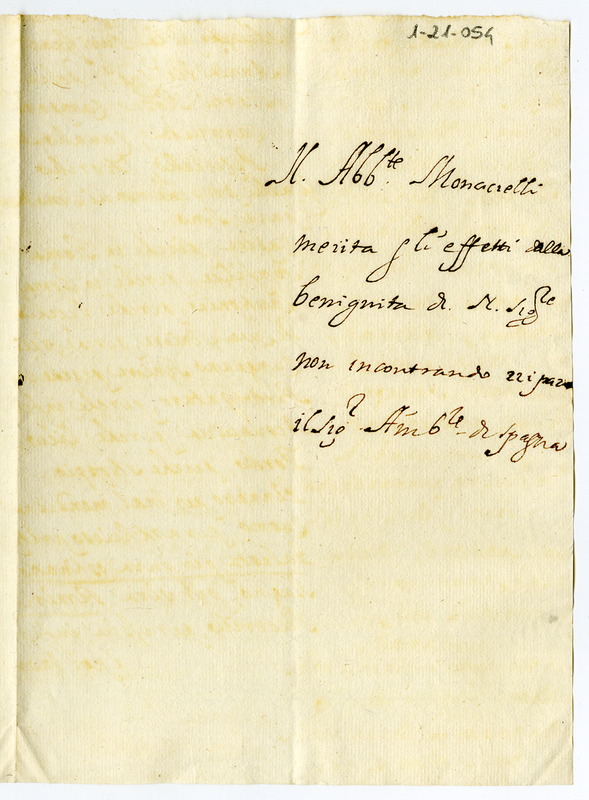 1-21-054
Il Abb.te Monacelli
merita gli effetti dalla
benignita di N. Sig.re
non incontrando ripar
il Sig.r Amb.re di Spagna